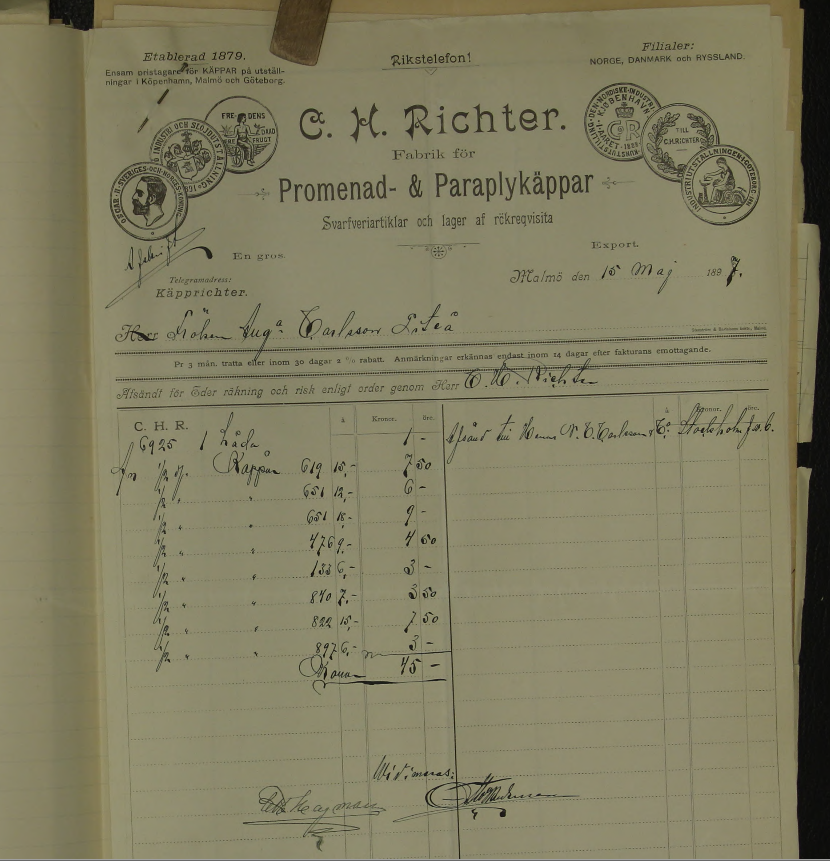 Etablerad 1879.
Ensam pristagare för KÄPPAR på utställ-
ningar i Köpenhamn, Malmö och Göteborg.
Rikstelefon!
Filialer:
NORGE, DANMARK och RYSSLAND.
FRE DENS
OSCAR·II·SVERIGES·OCH·NORGES·KONUNG
INDUSTRI OCH SLÖJDUTSTÄLLNING
KJØBENHAVN
TILL
C.H.RICHTER
INDUSTRIUTSTÄLLNINGEN I GÖTEBORG 1891
C. H. Richter.
Fabrik för
Promenad- & Paraplykäppar
Svarfveriartiklar och lager af rökreqvisita
En gros.
Export.
Telegramadress:
Käpprichter.
Malmö den 15 Maj 1897.
Herr Fröken Auga Carlsson Piteå
Pr 3 mån. tratta eller inom 30 dagar 2 % rabatt. Anmärkningar erkännas endast inom 14 dagar efter fakturans emottagande.
Afsändt för Eder räkning och risk enligt order genom Herr C. H. Richter
C. H. R. à Kronor. öre. à Kronor. öre.
6925 1 Låda 1 -
1/2 Käppar 619 15,- 7 50
1/2 " " 651 12,- 6 -
1/2 " " 651 18,- 9 -
1/2 " " 476 9,- 4 50
1/2 " " 133 6,- 3 -
1/2 " " 840 7,- 3 50
1/2 " " 822 15,- 7 50
1/2 " " 897 6,- 3 -
Kronor 45 -
Afsänd till Herrar N. C. Carlsson & Co. Stockholm
Widimeras: